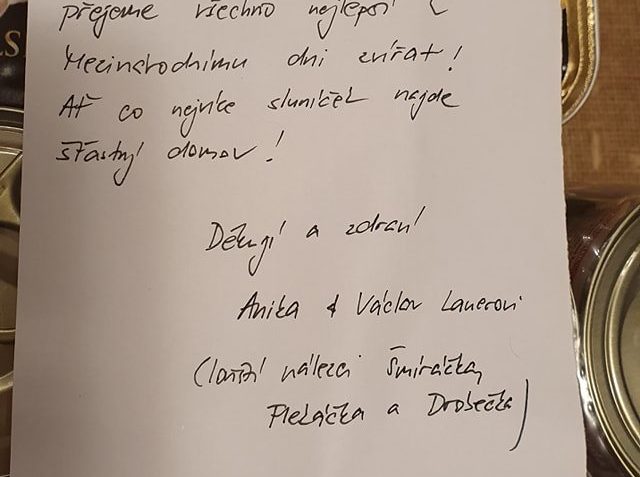 přejeme všechno nejlepší k
Mezinárodnímu dni zvířat!
Ať co nejvíce sluníček najde
šťastný domov!
Děkují a zdraví
Anika & Václav Lauerovi
(loňští nálezci Šmíráčka,
Pleháčka a Drobečka)